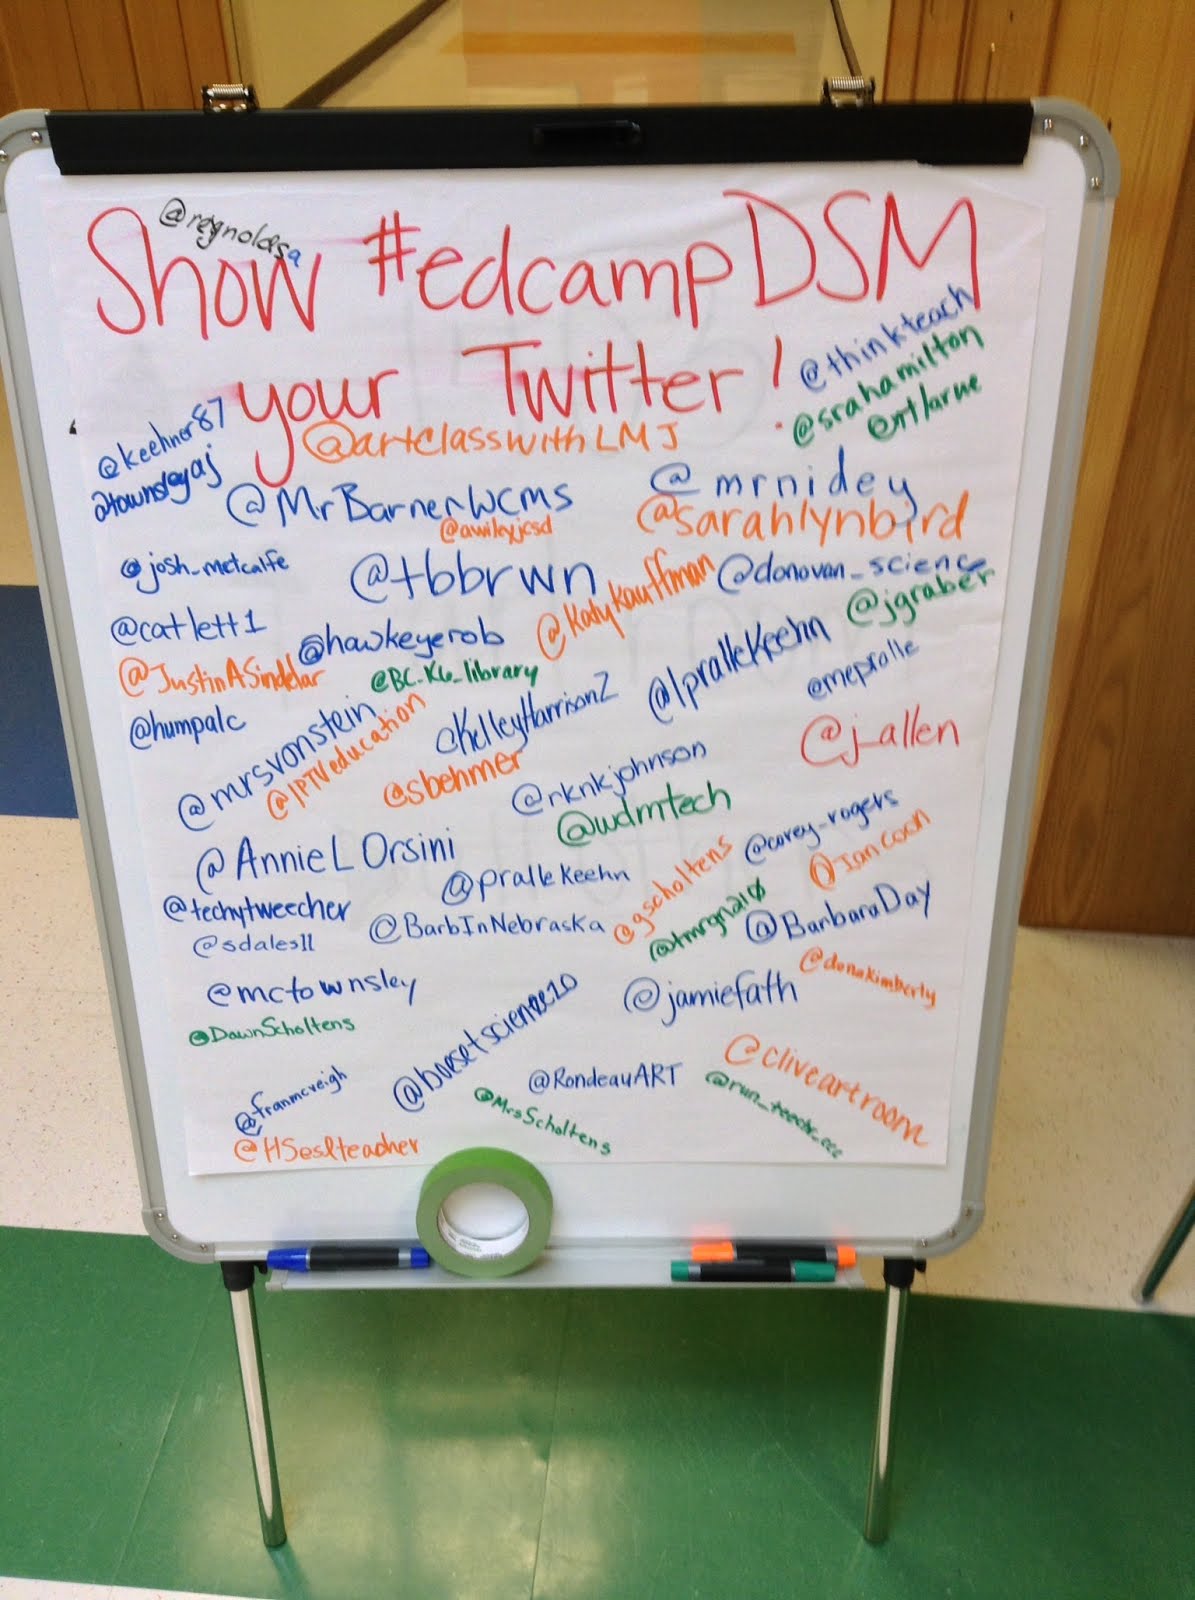 @reynoldsa
Show #edcampDSM
your Twitter!
@thinkteach
@srahamilton
@keehner87
@artclasswithLMJ
@townsleyaj
@MrBarnerWCMS
@mrnidey
@awileyjcsd
@sarahlynbird
@josh_metcalfe
@tbbrwn
@KatyKauffman
@donovan_science
@jgraber
@catlett1
@hawkeyerob
@JustinASindelar
@BC_K6_library
@lpralleKeehn
@mepralle
@humpalc
@mrsvonstein
@IPTVeducation
@KelleyHarrison2
@j_allen
@sbehmer
@rknkjohnson
@wdmtech
@AnnieLOrsini
@prallekeehn
@corey_rogers
@Iancoon
@techytweecher
@BarbInNebraska
@gscholtens
@tmrgn210
@BarbaraDay
@sdales11
@donakimberly
@mctownsley
@jamiefath
@DawnScholtens
@boesetscience20
@RondeauART
@cliveartroom
@franmcveigh
@MrsScholtens
@HSeslteacher